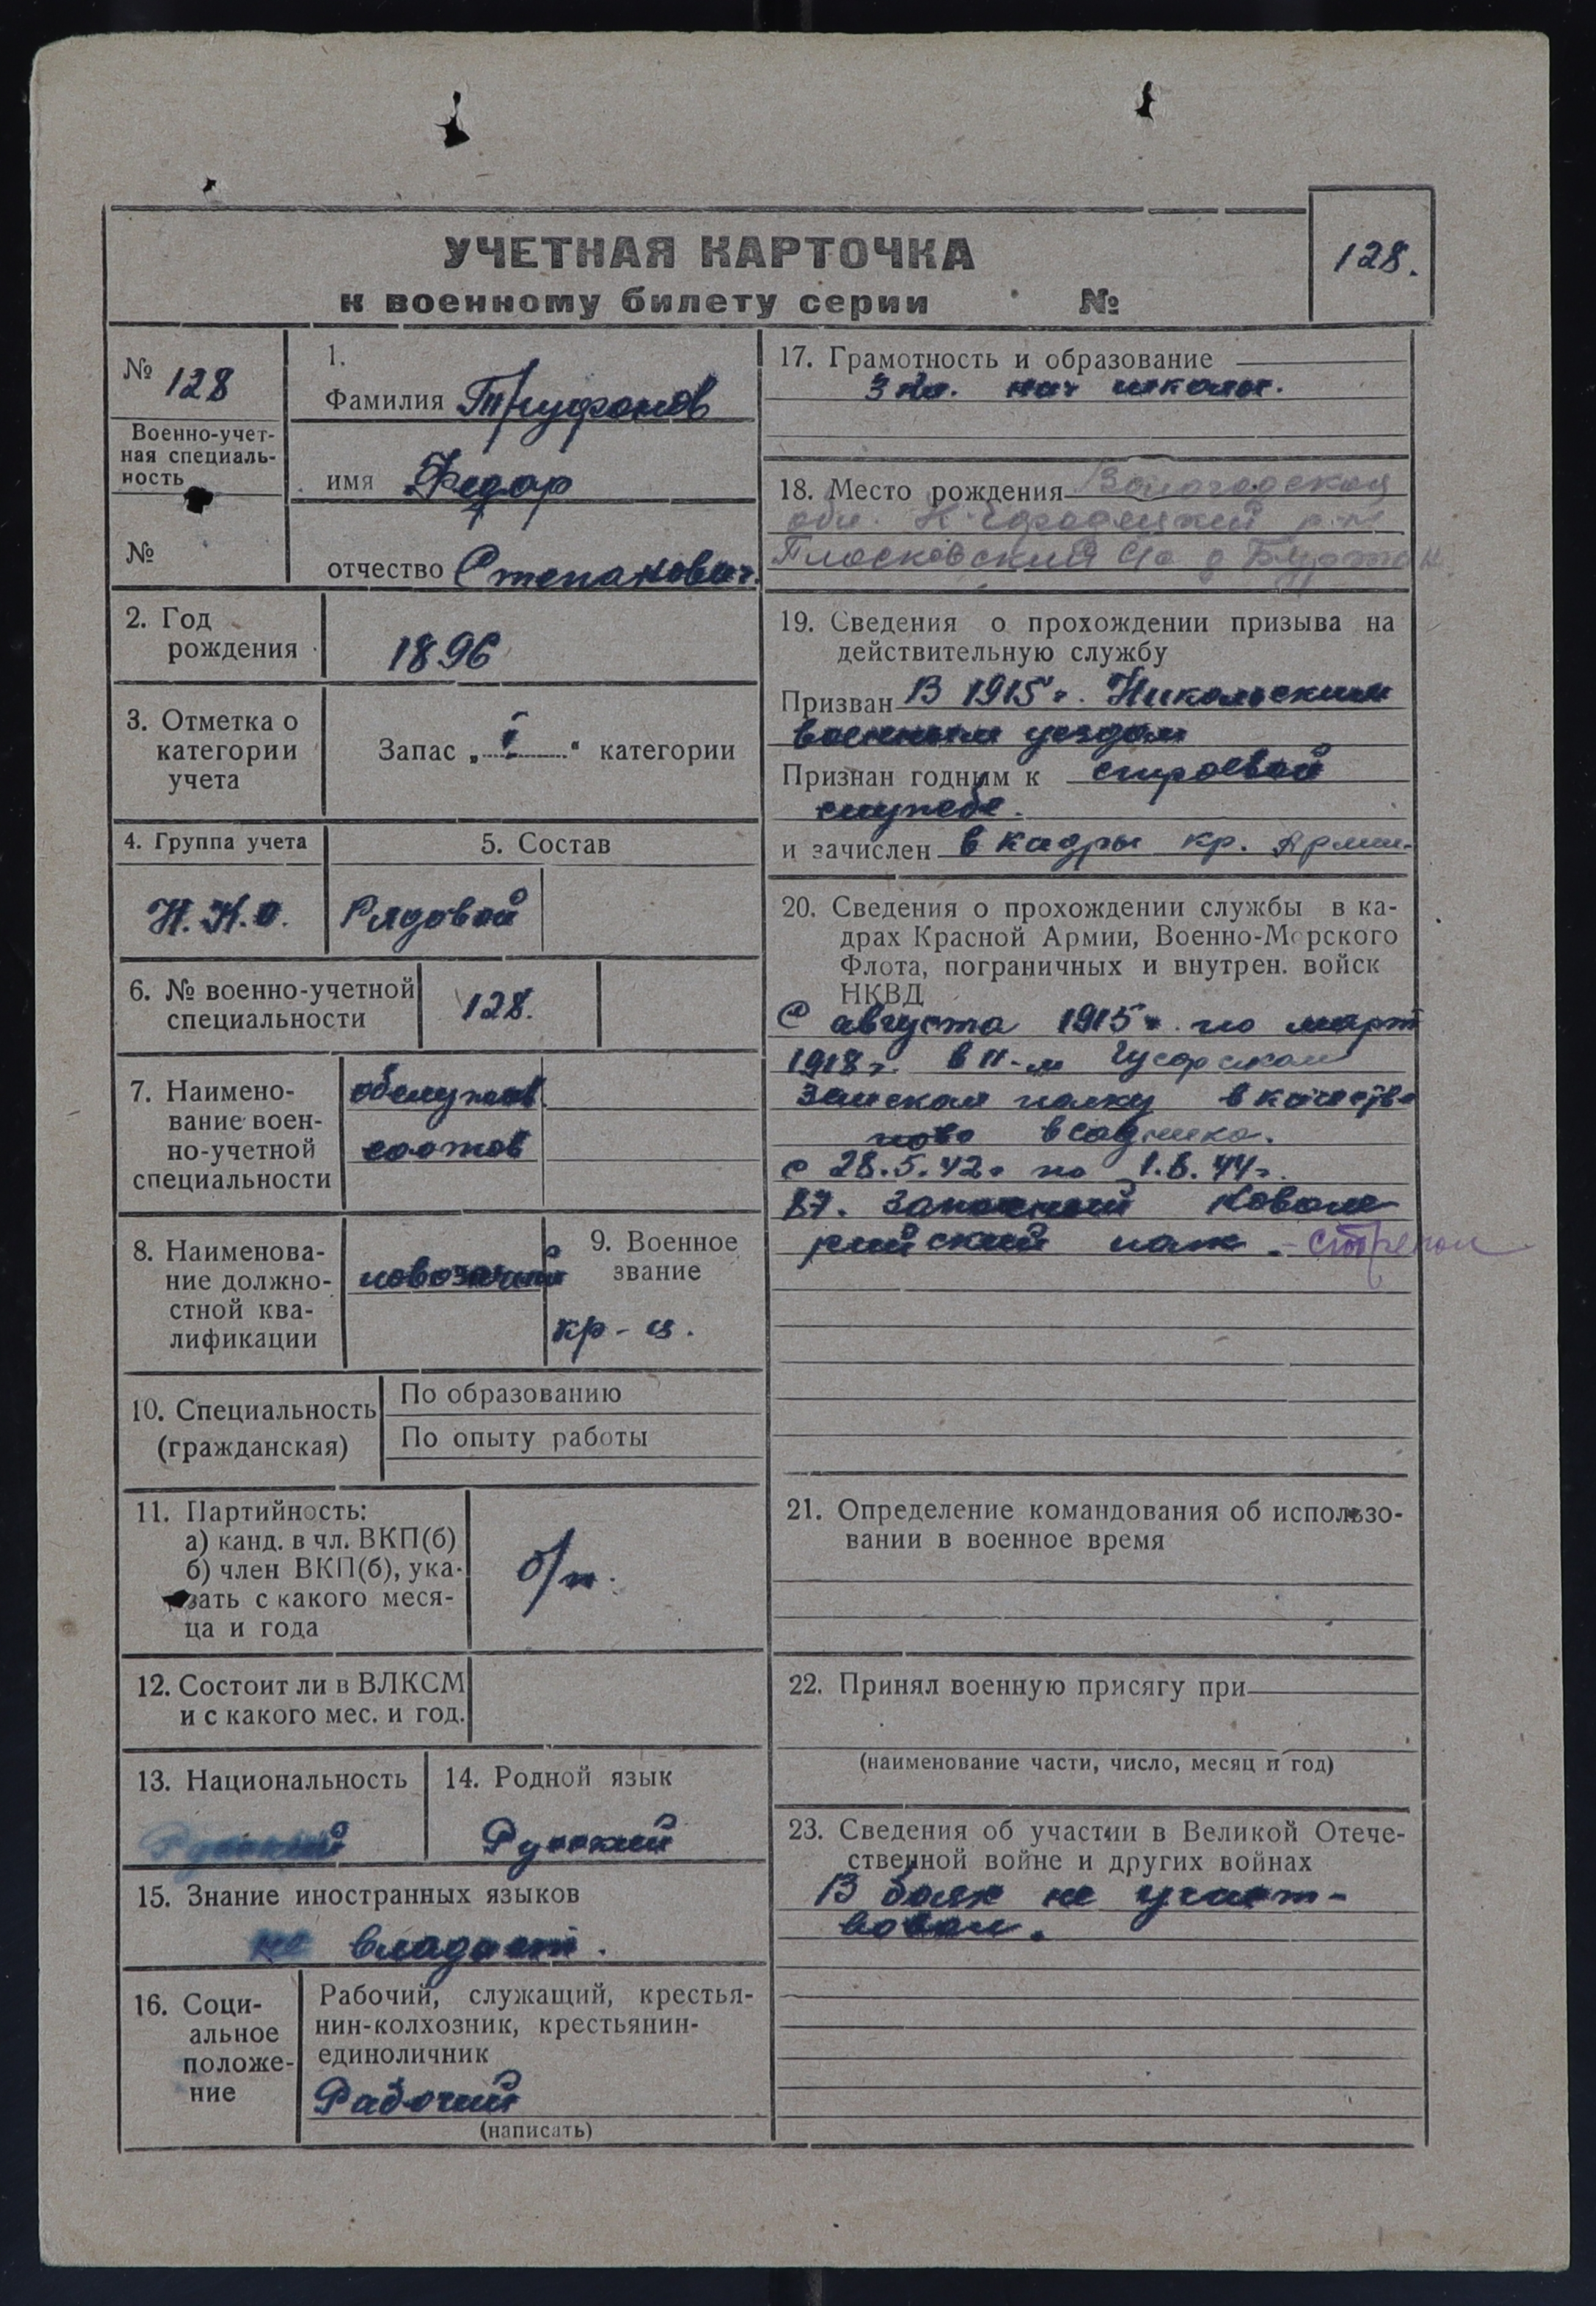 УЧЕТНАЯ КАРТОЧКА
к военному билету серии №
128.
№ 128
Военно-учет-
ная специаль-
ность
№
1.
Фамилия Труфанов
имя Федор
отчество Степанович.
2. Год
рождения
1896
3. Отметка о
категории
учета
Запас „ I “ категории
4. Группа учета
Н.К.О.
5. Состав
Рядовой
6. № военно-учетной
специальности
128.
7. Наимено-
вание воен-
но-учетной
специальности
обслужив.
состав
8. Наименова-
ние должно-
стной ква-
лификации
повозочный
9. Военное
звание
кр-ц.
10. Специальность
(гражданская)
По образованию
По опыту работы
11. Партийность:
а) канд. в чл. ВКП(б)
б) член ВКП(б), ука-
зать с какого меся-
ца и года
б/п.
12. Состоит ли в ВЛКСМ
и с какого мес. и год.
13. Национальность
Русский
14. Родной язык
Русский
15. Знание иностранных языков
не владеет.
16. Соци-
альное
положе-
ние
Рабочий, служащий, крестья-
нин-колхозник, крестьянин-
единоличник
Рабочий
(написать)
17. Грамотность и образование
3 кл. нач школы.
18. Место рождения Вологодская
обл. К-Городецкий р-н
Плосковский с/с д
19. Сведения о прохождении призыва на
действительную службу
Призван В 1915 г. Никольским
военным уездом
Признан годным к строевой
службе.
и зачислен в кадры кр. Армии.
20. Сведения о прохождении службы в ка-
драх Красной Армии, Военно-Морского
Флота, пограничных и внутрен. войск
НКВД
С августа 1915 г. по март
1918 г. в Гусарском
полку в качества
всадника.
с 28.5.42 г по 1.8.44 г.
87. Запасный Кавале
рийский полк. - стрелок
21. Определение командования об использо-
вании в военное время
22. Принял военную присягу при
(наименование части, число, месяц и год)
23. Сведения об участии в Великой Отече-
ственной войне и других войнах
В боях не участ-
вовал.